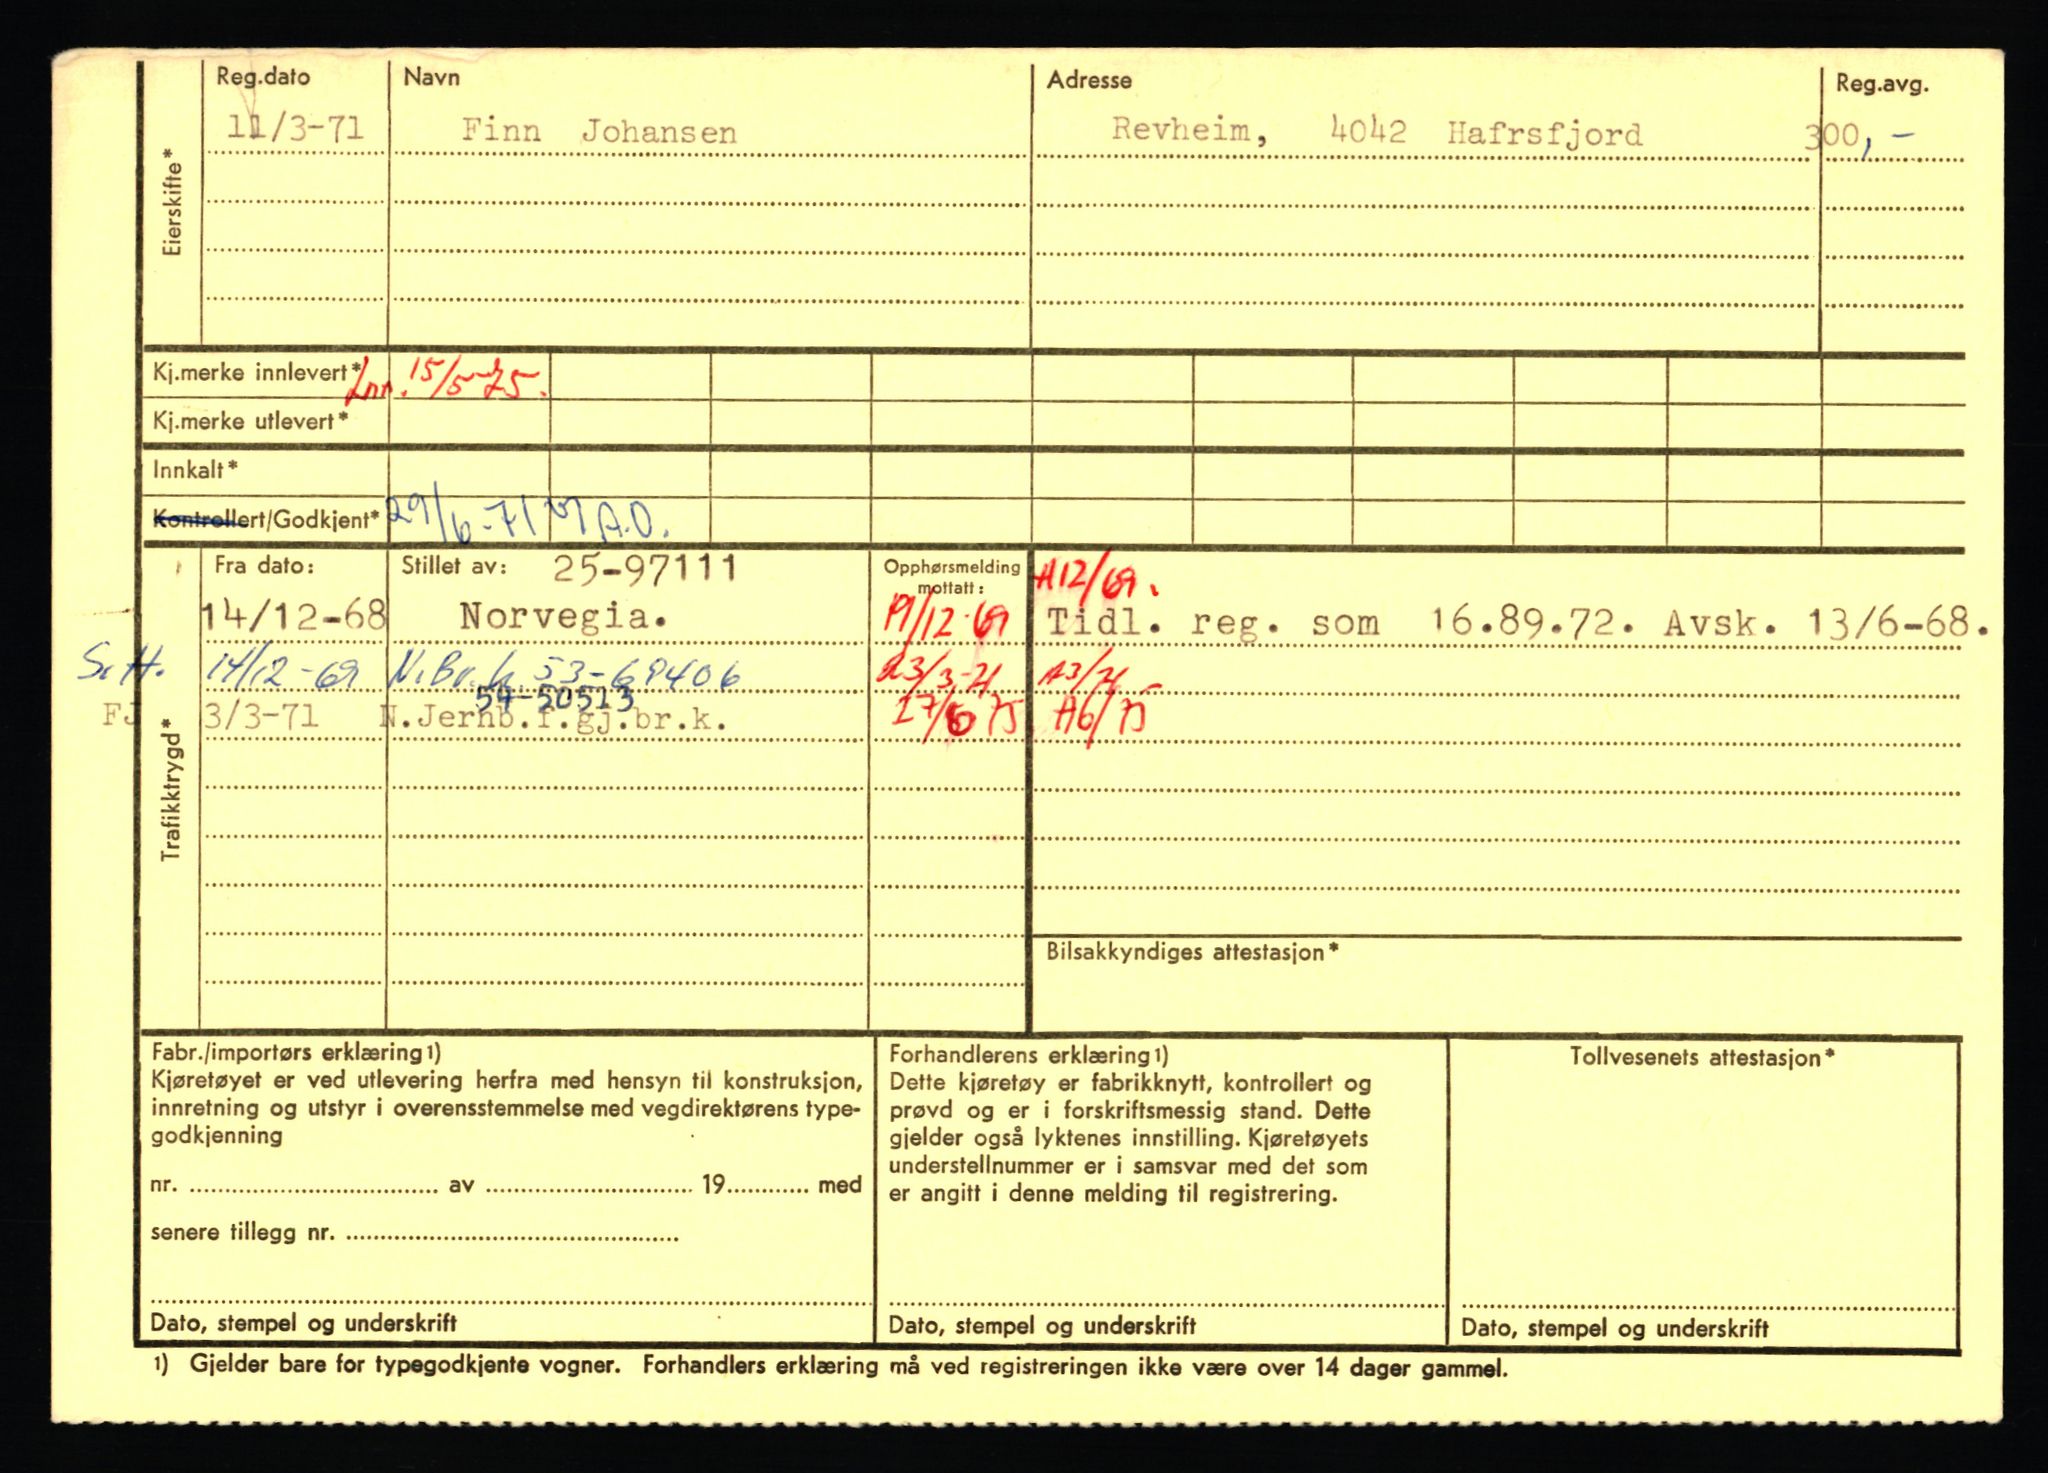 Reg.dato Navn Adresse Reg.avg.
11/3-71 Finn Johansen Revheim, 4042 Hafrsfjord 300,-
Eierskifte*
Kj.merke innlevert* Inn. 15/5-75.
Kj.merke utlevert*
Innkalt*
Kontrollert/Godkjent* 29/6-71 A.O.
Fra dato: Stillet av: 25-97111 Opphørsmelding mottatt: A12/69.
14/12-68 Norvegia. 19/12-69 Tidl. reg. som 16.89.72. Avsk. 13/6-68.
S.H. 14/12-69 N.Br.k. 53-69406 23/3-71 A3/71
54-50513
FJ 3/3-71 N.Jernb.f.gj.br.k. 17/6 75 A6/75
Trafikktrygd*
Bilsakkyndiges attestasjon*
Fabr./importørs erklæring1)
Kjøretøyet er ved utlevering herfra med hensyn til konstruksjon,
innretning og utstyr i overensstemmelse med vegdirektørens type-
godkjenning
nr. .......... av .......... 19.......... med
senere tillegg nr. ..........
Dato, stempel og underskrift
Forhandlerens erklæring1)
Dette kjøretøy er fabrikknytt, kontrollert og
prøvd og er i forskriftsmessig stand. Dette
gjelder også lyktenes innstilling. Kjøretøyets
understellnummer er i samsvar med det som
er angitt i denne melding til registrering.
Dato, stempel og underskrift
Tollvesenets attestasjon*
Dato, stempel og underskrift
1) Gjelder bare for typegodkjente vogner. Forhandlers erklæring må ved registreringen ikke være over 14 dager gammel.